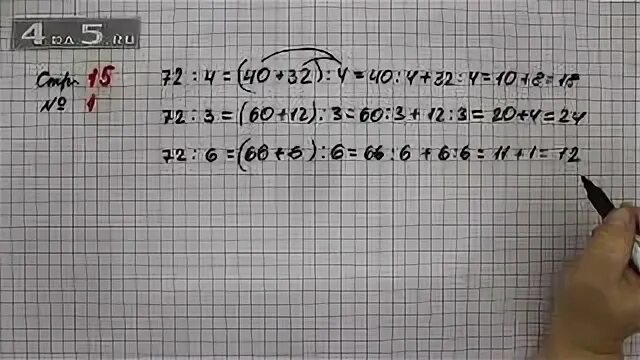 4 DA 5.RU
Стр. 15
№ 1
72 : 4 = (40 + 32) : 4 = 40 : 4 + 32 : 4 = 10 + 8 = 18
72 : 3 = (60 + 12) : 3 = 60 : 3 + 12 : 3 = 20 + 4 = 24
72 : 6 = (66 + 6) : 6 = 66 : 6 + 6 : 6 = 11 + 1 = 12